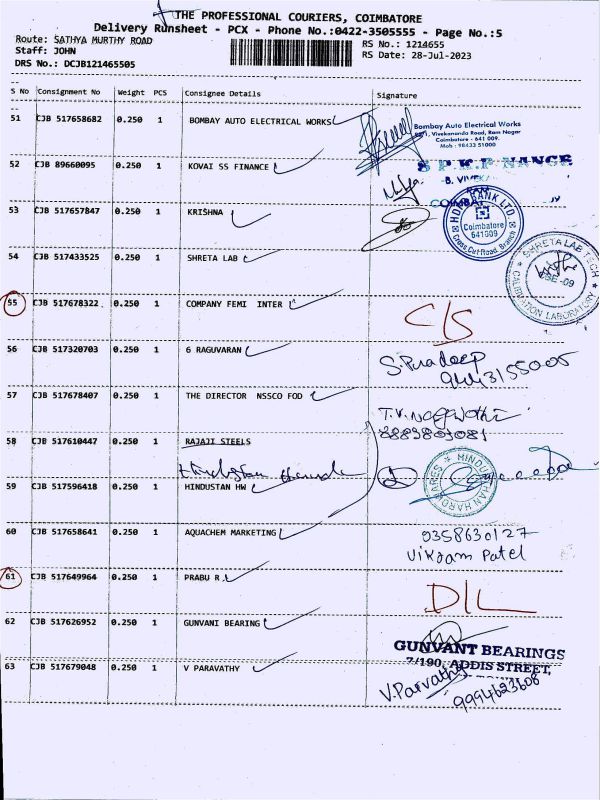 THE PROFESSIONAL COURIERS, COIMBATORE
Delivery Runsheet - PCX - Phone No.:0422-3505555 - Page No.:5
Route: SATHYA MURTHY ROAD RS No.: 1214655
Staff: JOHN RS Date: 28-Jul-2023
DRS No.: DCJB121465505
S No Consignment No Weight PCS Consignee Details Signature
51 CJB 517658682 0.250 1 BOMBAY AUTO ELECTRICAL WORKS
Bombay Auto Electrical Works
Vivekananda Road, Ram Nagar
Coimbatore - 641 009.
Mob : 98433 51000
52 CJB 89660095 0.250 1 KOVAI SS FINANCE
53 CJB 517657847 0.250 1 KRISHNA
BANK LTD.
Coimbatore
641009
Cross Cut Road, Branch
54 CJB 517433525 0.250 1 SHRETA LAB
SHRETA LAB TECH
CALIBRATION LABORATORY
55 CJB 517678322 0.250 1 COMPANY FEMI INTER C/S
56 CJB 517320703 0.250 1 G RAGUVARAN S.Pradeep
9443155005
57 CJB 517678407 0.250 1 THE DIRECTOR NSSCO FOD
58 CJB 517610447 0.250 1 RAJAJI STEELS
59 CJB 517596418 0.250 1 HINDUSTAN HW
HINDUSTHAN HARDWARES
60 CJB 517658641 0.250 1 AQUACHEM MARKETING 0358630127
Vikram Patel
61 CJB 517649964 0.250 1 PRABU R D/L
62 CJB 517626952 0.250 1 GUNVANI BEARING
GUNVANT BEARINGS
7/190, ADDIS STREET,
63 CJB 517679048 0.250 1 V PARAVATHY V.Parvathy
9994623608